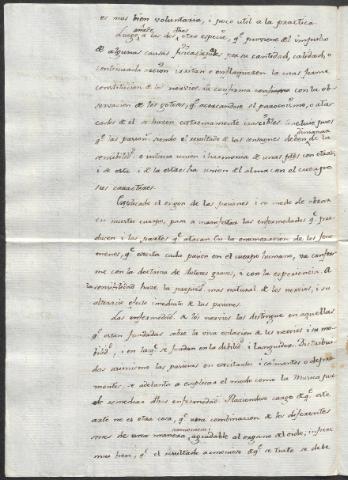 es mas bien voluntaria, i poco util a la practica.
Luego a la de otra especie, qe proviene del impulso
de algunas causas fisicas, qe por su cantidad, calidad, o
continuada accion irritan o enflaquecen la mas firme
constitucion de los nervios. Lo confirma con la ob-
servacion de los gotosos, qe acercandose el paroxismo, o ataca-
dos de el se hacen extremamente irascibles
qe las pasiones siendo el resultado de las sensaciones de la
sensibilid o intima union i harmonia de unas fibras con otras,
i de esta i de la estrecha union del alma con el cuerpo
sus caracteres.
Explicado el origen de las pasiones i su modo de obrar
en nuestro cuerpo, pasa a manifestar las enfermedades qe pro-
ducen i las partes qe atacan. En la enumeracion de los feno-
menos, qe excita cada pasion en el cuerpo humano, va confor-
me con la doctrina de Autores graves, i con la experiencia. A
la sensibilidad hace la propiedad mas natural de los nervios, i su
alteracion efecto inmediato de las pasiones.
Las enfermedades de los nervios las distingue en aquellas
qe estan fundadas sobre la viva oscilacion de los nervios i su mo-
bilidad, i en las qe se fundan en la debilidad i languidez. Distribui-
das asimismo las pasiones en excitantes i calmantes o depri-
mentes, se adelanta a explicar el modo como la Musica pue-
de remediar dhas enfermedades. Haciendose cargo de qe este
arte no es otra cosa, qe una combinacion de los diferentes
sones de una manera armoniosa i agradable al organo del oido, infiere
mui bien, qe el resultado armonioso de qe se trata se debe